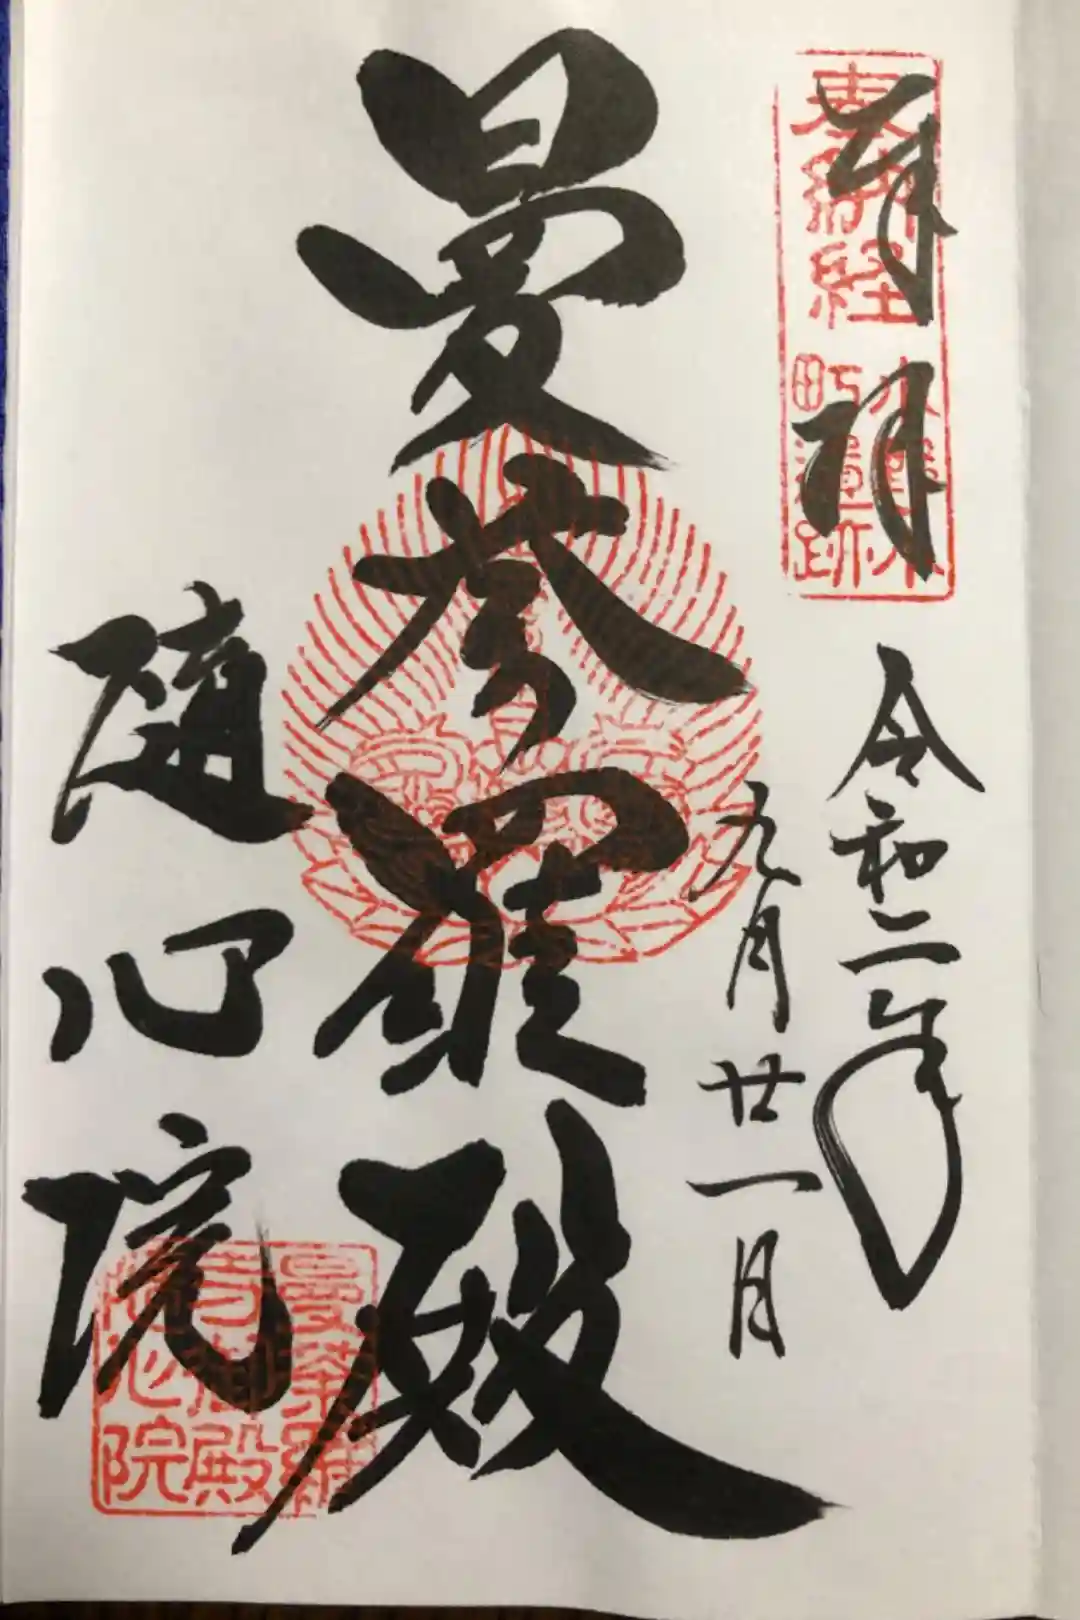 奉拝
奉納経
小野小町遺跡
令和二年
九月廿一日
曼荼羅殿
随心院
曼荼羅
寺御殿
随心院